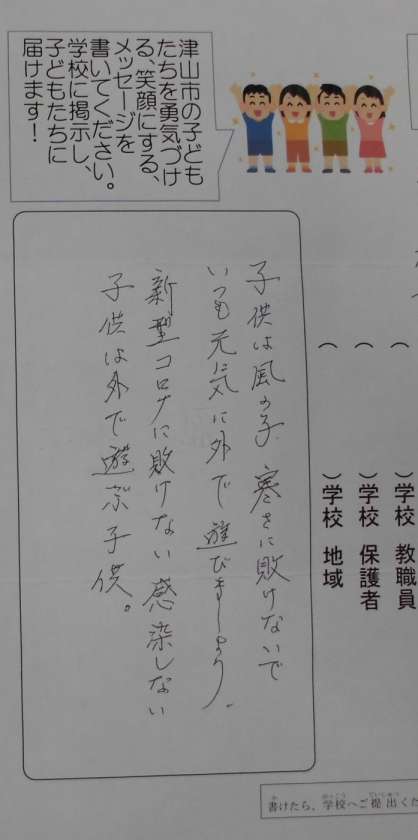 津山市の子ども
たちを勇気づけ
る、笑顔にする、
メッセージを
書いてください。
学校に掲示し、
子どもたちに
届けます！
（　　）学校 教職員
（　　）学校 保護者
（　　）学校 地域
子供は風の子 寒さに敗けないで
いつも元気に外で遊びましょう。
新型コロナに敗けない感染しない
子供は外で遊ぶ子供。
書けたら、学校へご提出くだ